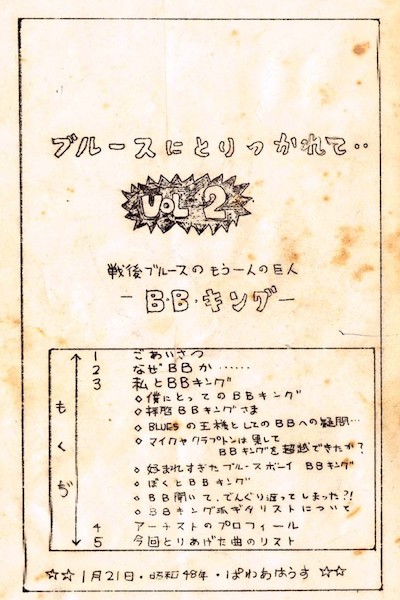 ブルースにとりつかれて‥
VOL 2
戦後ブルースのもう一人の巨人
－B・B・キング－
もくぢ
1 ごあいさつ
2 なぜBBか……
3 私とBBキング
◇僕にとってのBBキング
◇拝啓BBキングさま
◇BLUESの王様としてのBBへの疑問…
◇マイクやクラプトンは果して
BBキングを超越できたか?
◇好まれすぎたブルースボーイ BBキング
◇ぼくとBBキング
◇BB聞いて、でんぐり返ってしまった?!
◇BBキング派ギタリストについて
4 アーチストのプロフィール
5 今回とりあげた曲のリスト
☆☆1月21日・昭和48年・ぱわあはうす☆☆